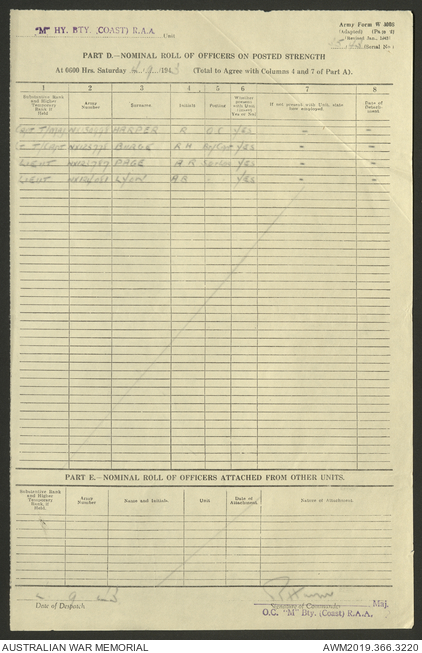 "M" HY. BTY. (COAST) R.A.A. Unit
Army Form W 3008
(Adapted) (Page 4)
(Revised Jan., 1942)
(Serial No.)
PART D.—NOMINAL ROLL OF OFFICERS ON POSTED STRENGTH
At 0600 Hrs. Saturday 9 194 (Total to Agree with Columns 4 and 7 of Part A).
1 2 3 4 5 6 7 8
Substantive Rank and Higher Temporary Rank if Held. Army Number Surnames. Initials Posting Whether present with Unit (insert Yes or No) If not present with Unit, state how employed. Date of
HARPER R O.C YES -
BURGE R H YES - -
LIEUT PAGE A R YES - -
LIEUT LYON A B - YES - -
PART E.—NOMINAL ROLL OF OFFICERS ATTACHED FROM OTHER UNITS.
Substantive Rank and Higher Temporary Rank if Held. Army Number Name and Initials. Unit Date of Attachment. Nature of Attachment.
9
Date of Despatch
Signature of Commander Maj.
O.C. "M" Bty. (Coast) R.A.A.
AUSTRALIAN WAR MEMORIAL AWM2019.366.3220